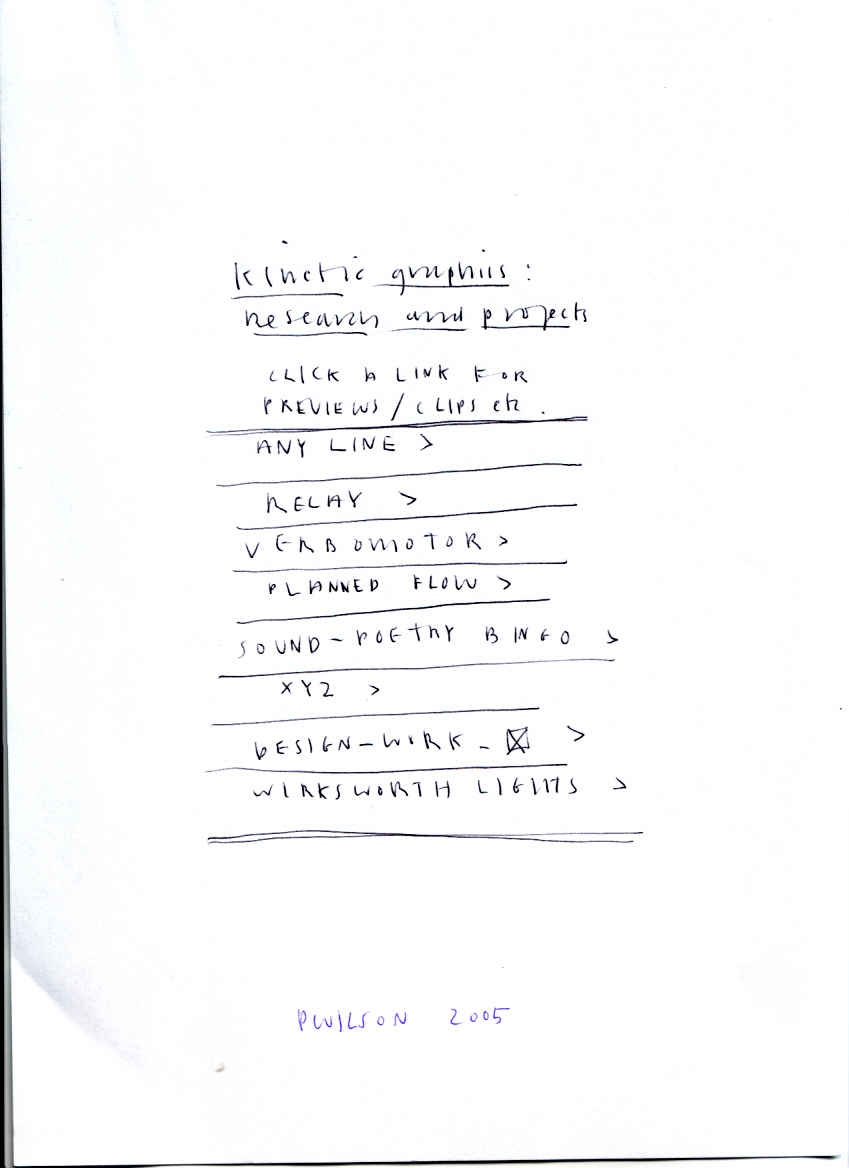 kinetic graphics:
research and projects
CLICK A LINK FOR
PREVIEWS / CLIPS etc.
ANY LINE >
RELAY >
VERBOMOTOR >
PLANNED FLOW >
SOUND-POETRY BINGO >
XYZ >
DESIGN-WORK - >
WIRKSWORTH LIGHTS >
PWILSON 2005